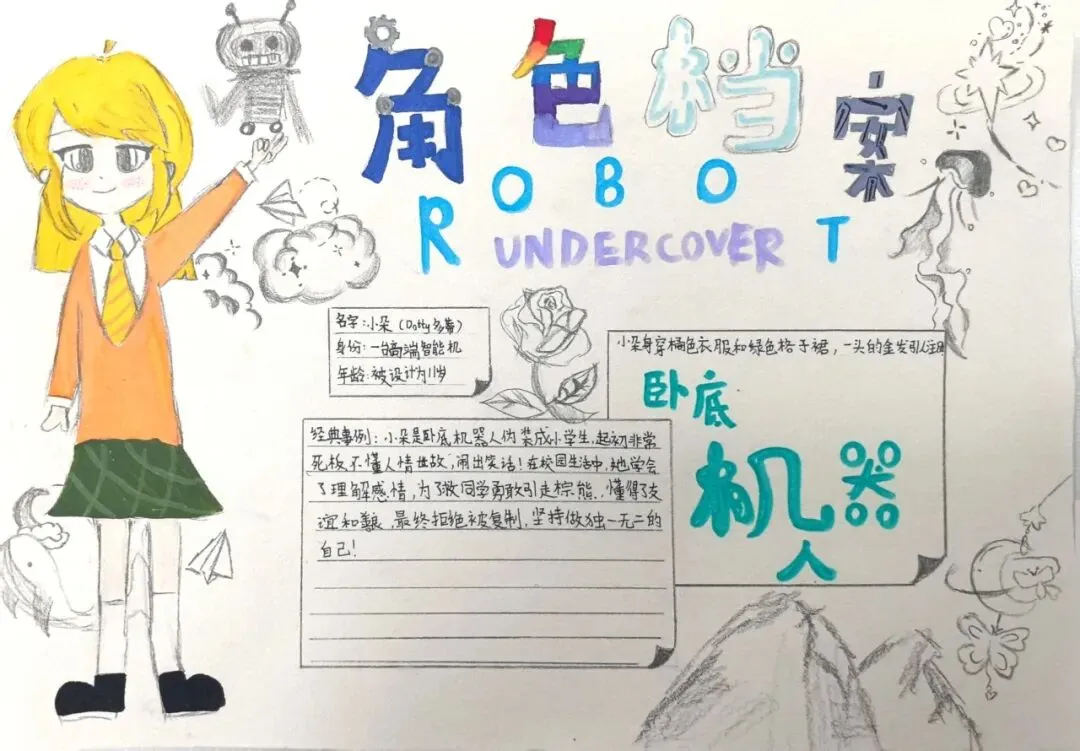 角色档案
ROBOT
UNDERCOVER
名字:小朵(Dotty多蒂)
身份:一台高端智能机
年龄:被设计为11岁
小朵身穿橘色衣服和绿色格子裙,一头的金发引人注目
卧底
机器
人
经典事例:小朵是卧底机器人伪装成小学生,起初非常
死板不懂人情世故,闹出笑话!在校园生活中,她学会
了理解感情,为了救同学勇敢引走棕熊,懂得了友
谊和艰,最终拒绝被复制,坚持做独一无二的
自己!